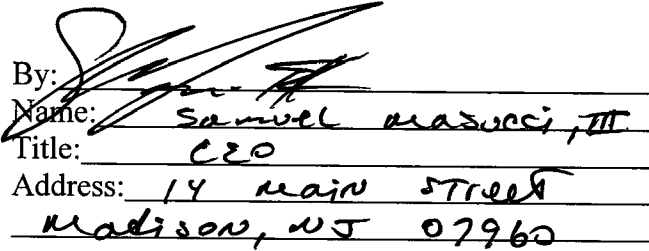 By:
Name: Samuel Masucci, III
Title: CEO
Address: 14 Main Street
Madison, NJ 07960